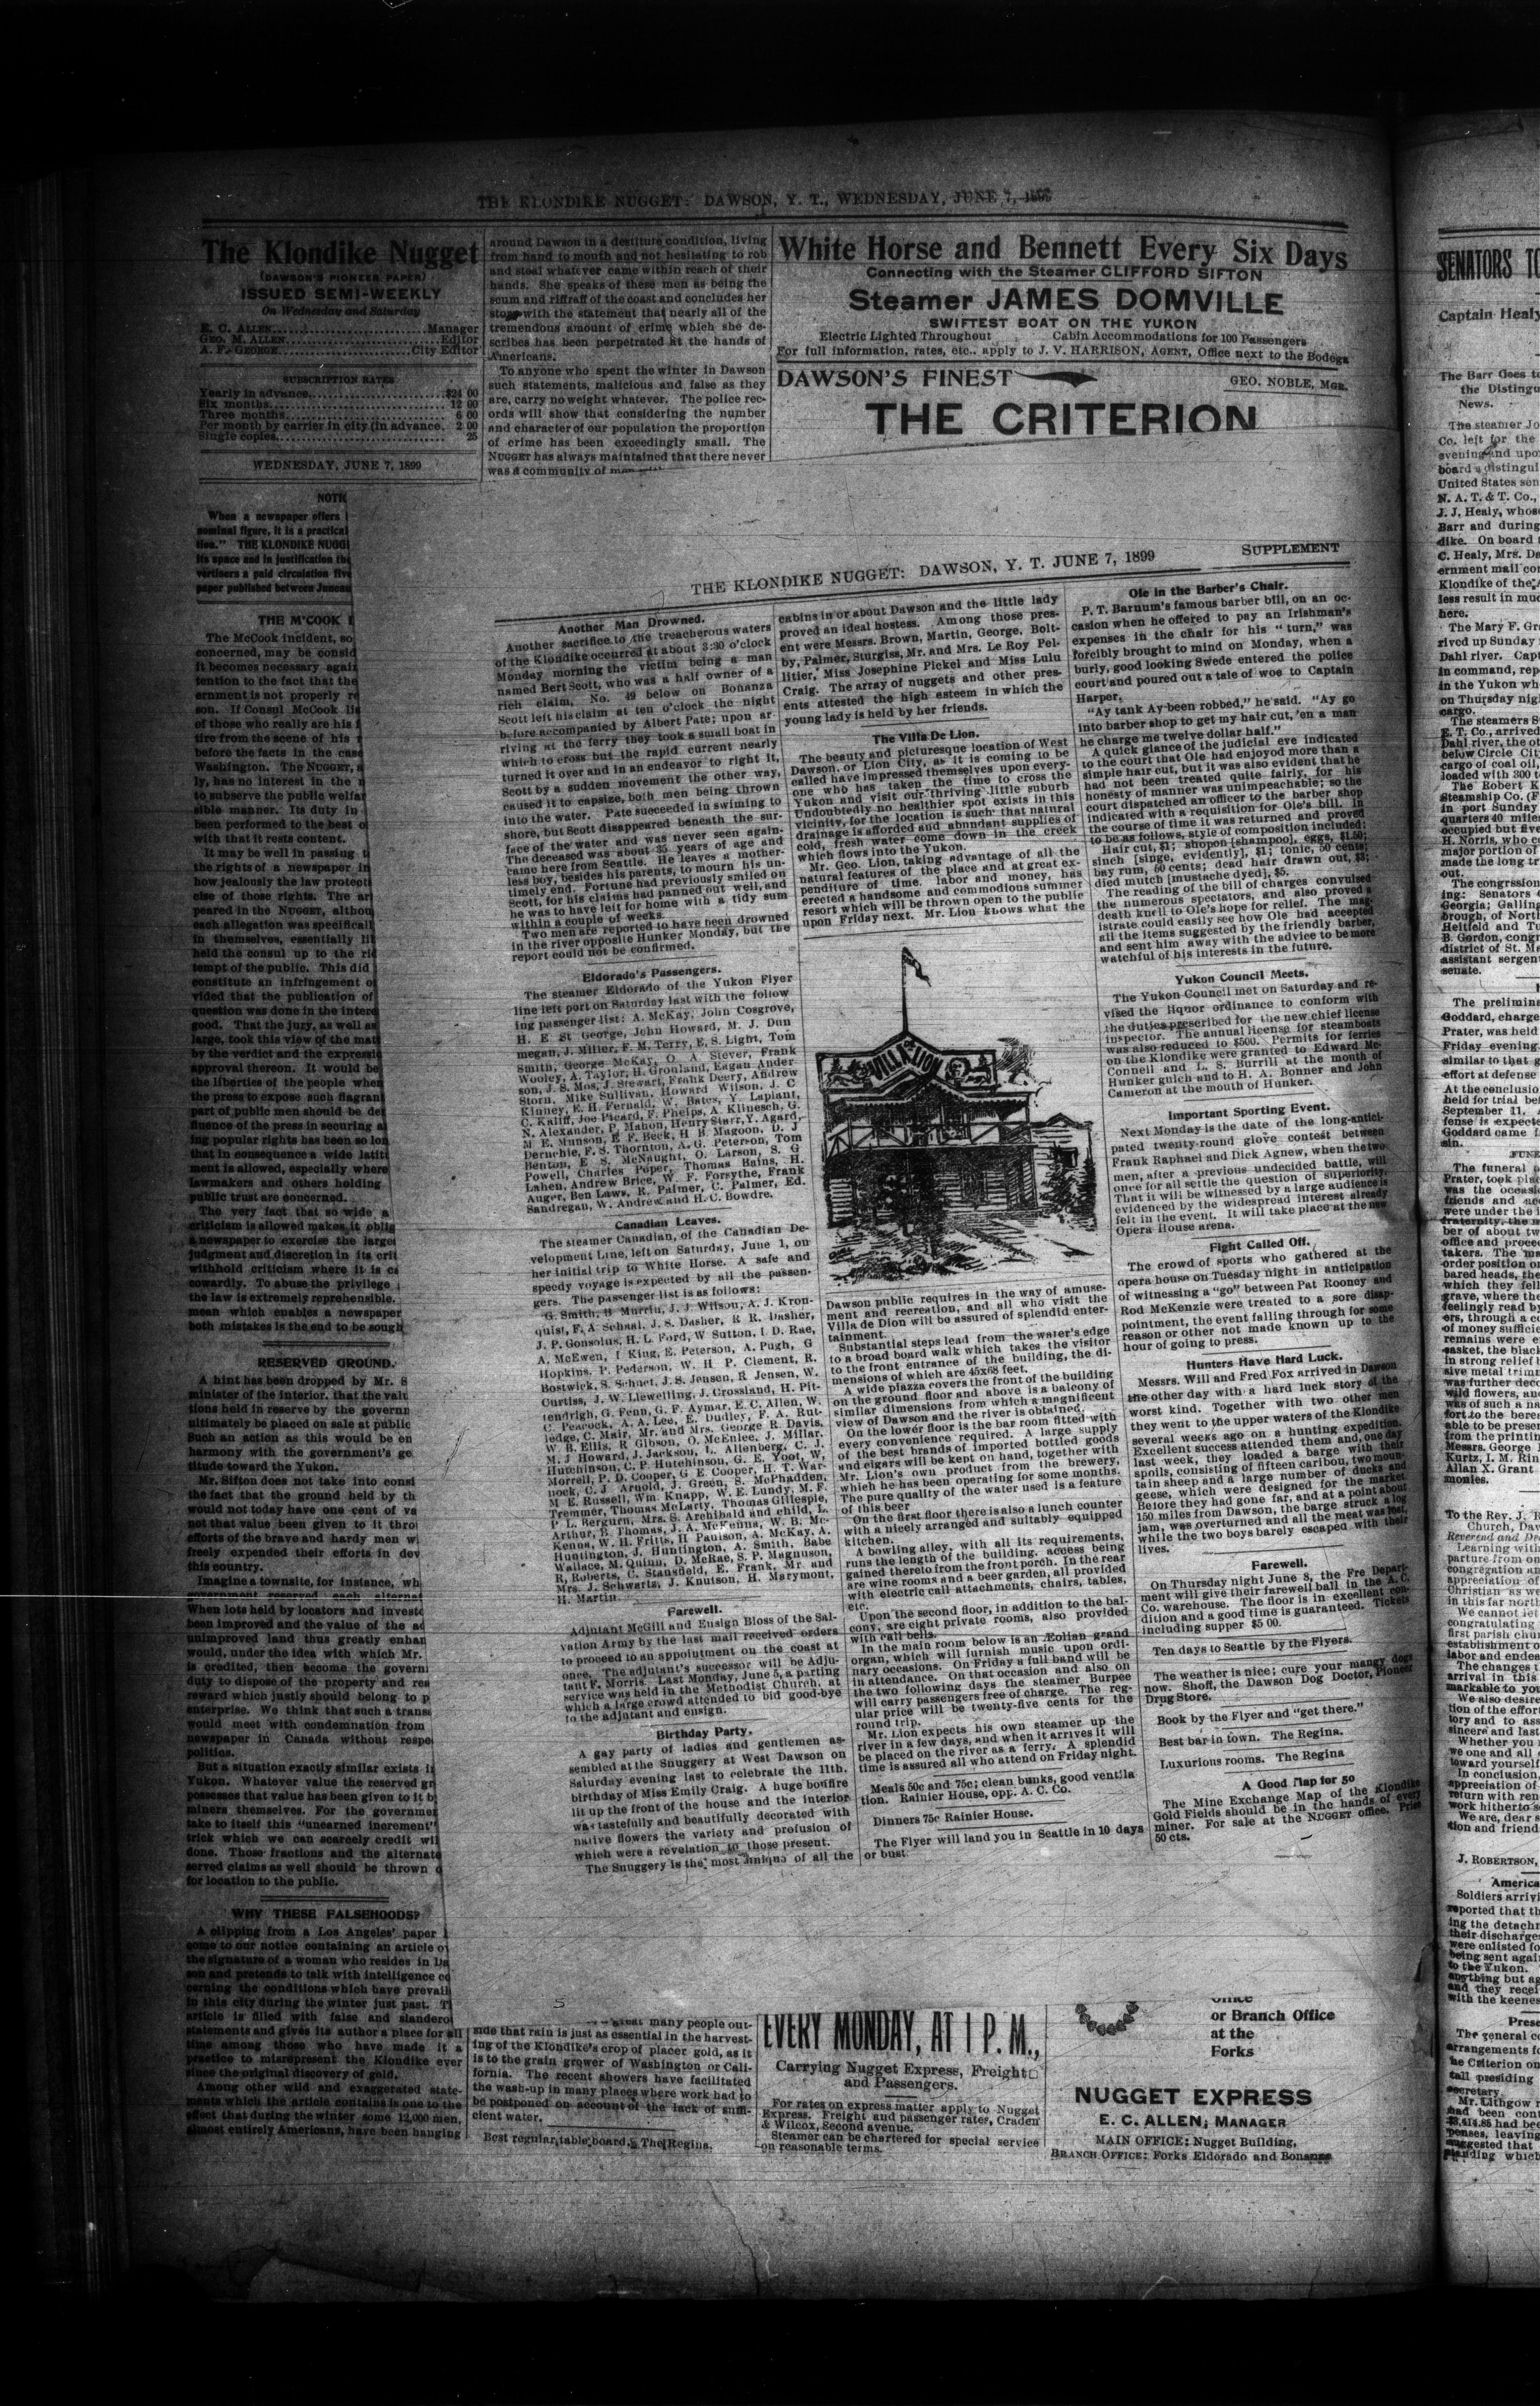 THE KLONDIKE NUGGET: DAWSON, Y. T., WEDNESDAY, JUNE 7, 1899
The Klondike Nugget
(DAWSON'S PIONEER PAPER)
ISSUED SEMI-WEEKLY
On Wednesday and Saturday
E. C. ALLEN Manager
GEO. M. ALLEN Editor
A. F. GEORGE City Editor
SUBSCRIPTION RATES
Yearly in advance $24 00
Six months 12 00
Three months 6 00
Per month by carrier in city (in advance. 2 00
Single copies 25
WEDNESDAY, JUNE 7, 1899
When a newspaper offers
nominal figure, it is a practical
tion." THE KLONDIKE NUGG
its space and in justification the
vertisers a paid circulation five
paper published between Juneau
THE M'COOK
The McCook incident, so
concerned, may be consid
it becomes necessary again
tention to the fact that the
ernment is not properly re
son. If Consul McCook
of those who really are his
tire from the scene of his
before the facts in the case
Washington. The NUGGET, a
ly, has no interest in the
to subserve the public welfar
sible manner. Its duty in
been performed to the best o
with that it rests content.
It may be well in passing t
the rights of a newspaper in
how jealously the law protect
cise of those rights. The ar
peared in the NUGGET, althou
each allegation was specificall
in themselves, essentially
held the consul up to the
tempt of the public. This did
constitute an infringement o
vided that the publication of
question was done in the inter
good. That the jury, as well as
large, took this view of the mat
by the verdict and the expressi
approval thereon. It would be
the liberties of the people when
the press to expose such flagran
part of public men should be de
fluence of the press in securing a
ing popular rights has been so lon
that in consequence a wide latit
ment is allowed, especially where
lawmakers and others holding
public trust are concerned.
The very fact that so wide a
criticism is allowed makes it oblig
a newspaper to exercise the large
judgment and discretion in its crit
withhold criticism where it is
cowardly. To abuse the privilege
the law is extremely reprehensible.
mean which enables a newspaper
both mistakes is the end to be sough
RESERVED GROUND.
A hint has been dropped by Mr. S
minister of the interior, that the
tions held in reserve by the governm
ultimately be placed on sale at public
Such an action as this would be en
harmony with the government's ge
titude toward the Yukon.
Mr. Sifton does not take into consi
the fact that the ground held by th
would not today have one cent of va
not that value been given to it thro
efforts of the brave and hardy men w
freely expended their efforts in dev
this country.
Imagine a townsite, for instance, wh
government reserved each alternat
When lots held by locators and investo
been improved and the value of the
unimproved land thus greatly enhan
would, under the idea with which Mr.
is credited, then become the governi
duty to dispose of the property and
reward which justly should belong to p
enterprise. We think that such a trans
would meet with condemnation from
newspaper in Canada without respe
politics.
But a situation exactly similar exists i
Yukon. Whatever value the reserved gr
possesses that value has been given to it b
miners themselves. For the governmen
take to itself this "unearned increment"
trick which we can scarcely credit wil
done. Those fractions and the alternate
served claims as well should be thrown
for location to the public.
WHY THESE FALSEHOODS?
A clipping from a Los Angeles' paper
come to our notice containing an article
the signature of a woman who resides in Da
son and pretends to talk with intelligence co
cerning the conditions which have prevail
in this city during the winter just past. T
article is filled with false and slandero
statements and gives its author a place for all
time among those who have made it a
practice to misrepresent the Klondike ever
since the original discovery of gold.
Among other wild and exaggerated state-
ments which the article contains is one to the
effect that during the winter some 12,000 men,
almost entirely Americans, have been hanging
around Dawson in a destitute condition, living
from hand to mouth and not hesitating to rob
and steal whatever came within reach of their
hands. She speaks of these men as being the
scum and riffraff of the coast and concludes her
story with the statement that nearly all of the
tremendous amount of crime which she de-
scribes has been perpetrated at the hands of
Americans.
To anyone who spent the winter in Dawson
such statements, malicious and false as they
are, carry no weight whatever. The police rec-
ords will show that considering the number
and character of our population the proportion
of crime has been exceedingly small. The
NUGGET has always maintained that there never
was a community of
White Horse and Bennett Every Six Days
Connecting with the Steamer CLIFFORD SIFTON
Steamer JAMES DOMVILLE
SWIFTEST BOAT ON THE YUKON
Electric Lighted Throughout Cabin Accommodations for 100 Passengers
For full information, rates, etc., apply to J. V. HARRISON, AGENT, Office next to the Bodega
DAWSON'S FINEST
GEO. NOBLE, MGR.
THE CRITERION
THE KLONDIKE NUGGET: DAWSON, Y. T. JUNE 7, 1899 SUPPLEMENT
Another Man Drowned.
Another sacrifice to the treacherous waters
of the Klondike occurred at about 3:30 o'clock
Monday morning the victim being a man
named Bert Scott, who was a half owner of a
rich claim, No. 49 below on Bonanza
Scott left his claim at ten o'clock the night
before accompanied by Albert Pate; upon ar-
riving at the ferry they took a small boat in
which to cross but the rapid current nearly
turned it over and in an endeavor to right it,
Scott by a sudden movement the other way,
caused it to capsize, both men being thrown
into the water. Pate succeeded in swiming to
shore, but Scott disappeared beneath the sur-
face of the water and was never seen again-
The deceased was about 35 years of age and
came here from Seattle. He leaves a mother-
less boy, besides his parents, to mourn his un-
timely end. Fortune had previously smiled on
Scott, for his claims had panned out well, and
he was to have left for home with a tidy sum
within a couple of weeks.
Two men are reported to have been drowned
in the river opposite Hunker Monday, but the
report could not be confirmed.
Eldorado's Passengers.
The steamer Eldorado of the Yukon Flyer
line left port on Saturday last with the follow
ing passenger list: A. McKay, John Cosgrove,
H. E St George, John Howard, M. J. Dun
megan, J. Miller, F. M. Terry, E. S. Light, Tom
Smith, George McKay, O. A. Stever, Frank
Wooley, A. Taylor, H. Gronland, Eagan Ander-
son, J. S. Mos, J. Stewart, Frank Deery, Andrew
Storn, Mike Sullivan, Howard Wilson, J. C
Kinney, E. H. Fernald, W. Bates, Y. Laplant,
C. Kaliff, Joe Picard, F. Phelps, A. Klinesch, G.
N. Alexander, P. Mahon, Henry Starr, Y. Agard,
M E. Munson, E F. Beck, H B. Magoon, D. J
Deruchie, F. S. Thornton, A. G. Peterson, Tom
Benton, E S. McNaught, O. Larson, S. G
Powell, Charles Poper, Thomas Bains, H.
Lahen, Andrew Brice, W. F. Forsythe, Frank
Auger, Ben Laws, R. Palmer, C. Palmer, Ed.
Sandregan, W. Andrew and H. C. Bowdre.
Canadian Leaves.
The steamer Canadian, of the Canadian De-
velopment Line, left on Saturday, June 1, on
her initial trip to White Horse. A safe and
speedy voyage is expected by all the passen-
gers. The passenger list is as follows:
G. Smith, B Murrin, J. J. Wilson, A. J. Kron-
quist, F. A Schaal, J. S. Dasher, R R. Dasher,
J. P. Gonsolus, H. L. Ford, W Sutton, I D. Rae,
A. McEwen, I King, E. Peterson, A. Pugh, G
Hopkins, P. Pederson, W. H P. Clement, R.
Bostwick, S. Schaet, J. S. Jensen, R Jensen, W.
Curtiss, J. W. Llewelling, J. Crossland, H. Pit-
tendrigh, G. Fenn, G. F. Aymar, E. C. Allen, W.
C Peacock, A. A. Lee, E. Dudley, F. A. Rut-
ledge, C. Mair, Mr. and Mrs. George R. Davis,
W. B. Ellis, R Gibson, O. McEnlee, J. Millar,
M. J Howard, J. Jackson, L. Allenberg, C. J.
Hutchinson, C. P Hutchinson, G. E. Yoot, W,
Morrell, P. D. Cooper, G E Cooper, H. T. War-
nock, C. J Arnold, J. Green, S. McPhadden,
M E. Russell, Wm. Knapp, W. E. Lundy, M. F.
Tremmer, Thomas McLarty, Thomas Gillespie,
P L. Bergurn, Mrs. S. Archibald and child, L.
Arthur, B. Thomas, J. A. McKenna, W. B. Mc-
Kenna, W. H. Fritts, H Paulson, A. McKay, A.
Huntington, J. Huntington, A. Smith, Babe
Wallace, M. Quinn, D. McRae, S. P. Magnuson,
R, Roberts, C. Stansfield, E. Frank, Mr and
Mrs. J. Schwartz, J. Knutson, H. Marymont,
H. Martin.
Farewell.
Adjutant McGill and Ensign Bloss of the Sal-
vation Army by the last mail received orders
to proceed to an appointment on the coast at
once. The adjutant's successor will be Adju-
tant F. Morris. Last Monday, June 5, a parting
service was held in the Methodist Church, at
which a large crowd attended to bid good-bye
to the adjutant and ensign.
Birthday Party.
A gay party of ladies and gentlemen as-
sembled at the Snuggery at West Dawson on
Saturday evening last to celebrate the 11th.
birthday of Miss Emily Craig. A huge bonfire
lit up the front of the house and the interior
was tastefully and beautifully decorated with
native flowers the variety and profusion of
which were a revelation to those present.
The Snuggery is the most unique of all the
cabins in or about Dawson and the little lady
proved an ideal hostess. Among those pres-
ent were Messrs. Brown, Martin, George, Bolt-
by, Palmer, Sturgiss, Mr. and Mrs. Le Roy Pel-
litier, Miss Josephine Pickel and Miss Lulu
Craig. The array of nuggets and other pres-
ents attested the high esteem in which the
young lady is held by her friends.
The Villa De Lion.
The beauty and picturesque location of West
Dawson, or Lion City, as it is coming to be
called have impressed themselves upon every-
one who has taken the time to cross the
Yukon and visit our thriving little suburb
Undoubtedly no healthier spot exists in this
vicinity, for the location is such that natural
drainage is afforded and abundant supplies of
cold, fresh water come down in the creek
which flows into the Yukon.
Mr. Geo. Lion, taking advantage of all the
natural features of the place and at great ex-
penditure of time, labor and money, has
erected a handsome and commodious summer
resort which will be thrown open to the public
upon Friday next. Mr. Lion knows what the
VILLA de LION
Dawson public requires in the way of amuse-
ment and recreation, and all who visit the
Villa de Dion will be assured of splendid enter-
tainment.
Substantial steps lead from the water's edge
to a broad board walk which takes the visitor
to the front entrance of the building, the di-
mensions of which are 45x68 feet.
A wide piazza covers the front of the building
on the ground floor and above is a balcony of
similar dimensions from which a magnificent
view of Dawson and the river is obtained.
On the lower floor is the bar room fitted with
every convenience required. A large supply
of the best brands of imported bottled goods
and cigars will be kept on hand, together with
Mr. Lion's own product from the brewery,
which he has been operating for some months.
The pure quality of the water used is a feature
of this beer
On the first floor there is also a lunch counter
with a nicely arranged and suitably equipped
kitchen.
A bowling alley, with all its requirements,
runs the length of the building, access being
gained thereto from the front porch. In the rear
are wine rooms and a beer garden, all provided
with electric call attachments, chairs, tables,
etc.
Upon the second floor, in addition to the bal-
cony, are eight private rooms, also provided
with call bells.
In the main room below is an Æolian grand
organ, which will furnish music upon ordi-
nary occasions. On Friday a full band will be
in attendance. On that occasion and also on
the two following days the steamer Burpee
will carry passengers free of charge. The reg-
ular price will be twenty-five cents for the
round trip.
Mr. Lion expects his own steamer up the
river in a few days, and when it arrives it will
be placed on the river as a ferry. A splendid
time is assured all who attend on Friday night.
Meals 50c and 75c; clean bunks, good ventila
tion. Rainier House, opp. A. C. Co.
Dinners 75c Rainier House.
The Flyer will land you in Seattle in 10 days
or bust
Ole in the Barber's Chair.
P. T. Barnum's famous barber bill, on an oc-
casion when he offered to pay an Irishman's
expenses in the chair for his "turn," was
forcibly brought to mind on Monday, when a
burly, good looking Swede entered the police
court and poured out a tale of woe to Captain
Harper.
"Ay tank Ay been robbed," he said. "Ay go
into barber shop to get my hair cut, 'en a man
he charge me twelve dollar half."
A quick glance of the judicial eye indicated
to the court that Ole had enjoyod more than a
simple hair cut, but it was also evident that he
had not been treated quite fairly, for his
honesty of manner was unimpeachable; so the
court dispatched an officer to the barber shop
indicated with a requisition for Ole's bill. In
the course of time it was returned and proved
to be as follows, style of composition included:
Hair cut, $1; shopon [shampoo], eggs, $1.50;
sinch [singe, evidently], $1; tonic, 50 cents;
bay rum, 50 cents; dead hair drawn out, $3;
died mutch [mustache dyed], $5.
The reading of the bill of charges convulsed
the numerous spectators, and also proved a
death knell to Ole's hope for relief. The mag-
istrate could easily see how Ole had accepted
all the items suggested by the friendly barber,
and sent him away with the advice to be more
watchful of his interests in the future.
Yukon Council Meets.
The Yukon Council met on Saturday and re-
vised the liquor ordinance to conform with
the duties prescribed for the new chief license
inspector. The annual license for steamboats
was also reduced to $500. Permits for ferries
on the Klondike were granted to Edward Mc-
Connell and L. S. Burrill at the mouth of
Hunker gulch and to H. A. Bonner and John
Cameron at the mouth of Hunker.
Important Sporting Event.
Next Monday is the date of the long-antici-
pated twenty-round glove contest between
Frank Raphael and Dick Agnew, when the two
men, after a previous undecided battle, will
once for all settle the question of superiority.
That it will be witnessed by a large audience is
evidenced by the widespread interest already
felt in the event. It will take place at the new
Opera House arena.
Fight Called Off.
The crowd of sports who gathered at the
opera house on Tuesday night in anticipation
of witnessing a "go" between Pat Rooney and
Rod McKenzie were treated to a sore disap-
pointment, the event falling through for some
reason or other not made known up to the
hour of going to press.
Hunters Have Hard Luck.
Messrs. Will and Fred Fox arrived in Dawson
the other day with a hard luck story of the
worst kind. Together with two other men
they went to the upper waters of the Klondike
several weeks ago on a hunting expedition.
Excellent success attended them and one day
last week, they loaded a barge with their
spoils, consisting of fifteen caribou, two moun-
tain sheep and a large number of ducks and
geese, which were designed for the market.
Before they had gone far, and at a point about
150 miles from Dawson, the barge struck a log
jam, was overturned and all the meat was lost,
while the two boys barely escaped with their
lives.
Farewell.
On Thursday night June 8, the Fre Depart-
ment will give their farewell ball in the A. C.
Co. warehouse. The floor is in excellent con-
dition and a good time is guaranteed. Tickets
including supper $5 00.
Ten days to Seattle by the Flyers.
The weather is nice; cure your mangy dogs
now. Shoff, the Dawson Dog Doctor, Pioneer
Drug Store.
Book by the Flyer and "get there."
Best bar in town. The Regina.
Luxurious rooms. The Regina
A Good Map for 50
The Mine Exchange Map of the Klondike
Gold Fields should be in the hands of every
miner. For sale at the NUGGET office. Price
50 cts.
great many people out-
side that rain is just as essential in the harvest-
ing of the Klondike's crop of placer gold, as it
is to the grain grower of Washington or Cali-
fornia. The recent showers have facilitated
the wash-up in many places where work had to
be postponed on account of the lack of suffi-
cient water.
Best regular table board, The Regina.
EVERY MONDAY, AT 1 P. M.,
Carrying Nugget Express, Freight
and Passengers.
For rates on express matter apply to Nugget
Express. Freight and passenger rates, Craden
& Wilcox, Second avenue.
Steamer can be chartered for special service
on reasonable terms.
Office
or Branch Office
at the
Forks
NUGGET EXPRESS
E. C. ALLEN, MANAGER
MAIN OFFICE: Nugget Building,
BRANCH OFFICE: Forks Eldorado and Bonanza
SENATORS TO
Captain Healy
The Barr Goes to
the Distingu
News.
The steamer Jo
Co. left for the
evening and upo
board a distingui
United States sen
N. A. T. & T. Co.,
J. J. Healy, whose
Barr and during
dike. On board
C. Healy, Mrs. De
ernment mail con
Klondike of the A
less result in muc
here.
The Mary F. Gr
rived up Sunday
Dahl river. Capt
in command, rep
in the Yukon wh
on Thursday nig
cargo.
The steamers S
E. T. Co., arrived
Dahl river, the o
below Circle Cit
cargo of coal oil,
loaded with 300 t
The Robert K
Steamship Co. (F
in port Sunday
quarters 40 miles
occupied but five
H. Norris, who co
major portion of
made the long tr
out.
The congressi
ing: Senators
Georgia; Galling
brough, of North
Heitfeld and Tu
B. Gordon, congr
district of St. M
assistant sergent
senate.
The prelimina
Goddard, charge
Prater, was held
Friday evening.
similar to that g
effort at defense
At the conclusio
held for trial bef
September 11.
fense is expecte
Goddard came f
sin.
The funeral
Prater, took plac
was the occasi
friends and ac
were under the i
fraternity, the m
ber of about tw
office and procee
takers. The ma
order position on
bared heads, the
which they fell
grave, where the
feelingly read by
ers, through a co
of money sufficie
remains were e
casket, the black
in strong relief
sive metal trimm
was further deco
wild flowers, and
was of such a na
fort to the berea
able to be presen
from the printin
Messrs. George
Kurtz, I. M. Rin
Allan X. Grant
monies.
To the Rev. J. R
Church, Daw
Reverend and De
Learning with
parture from on
congregation an
appreciation of
Christian as we
in this far north
We cannot let
congratulating
first parish chur
establishment o
labor and endea
The changes t
arrival in this
markable to you
We also desire
tion of the effort
tory and to ass
sincere and last
Whether you
we one and all
toward yourself
In conclusion,
appreciation of
return with ren
work hitherto s
We are, dear s
tion and friend
J. ROBERTSON,
America
Soldiers arrivi
reported that th
ing the detachm
their discharges
were enlisted fo
being sent again
to the Yukon.
anything but ag
and they recei
with the keenes
Prese
The general c
arrangements fo
he Criterion on
tall presiding
secretary.
Mr. Lithgow r
had been cont
$3,414.85 had bee
penses, leaving
suggested that
standing which